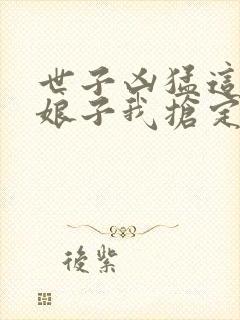 世子凶猛這
娘子我搶定
後紫